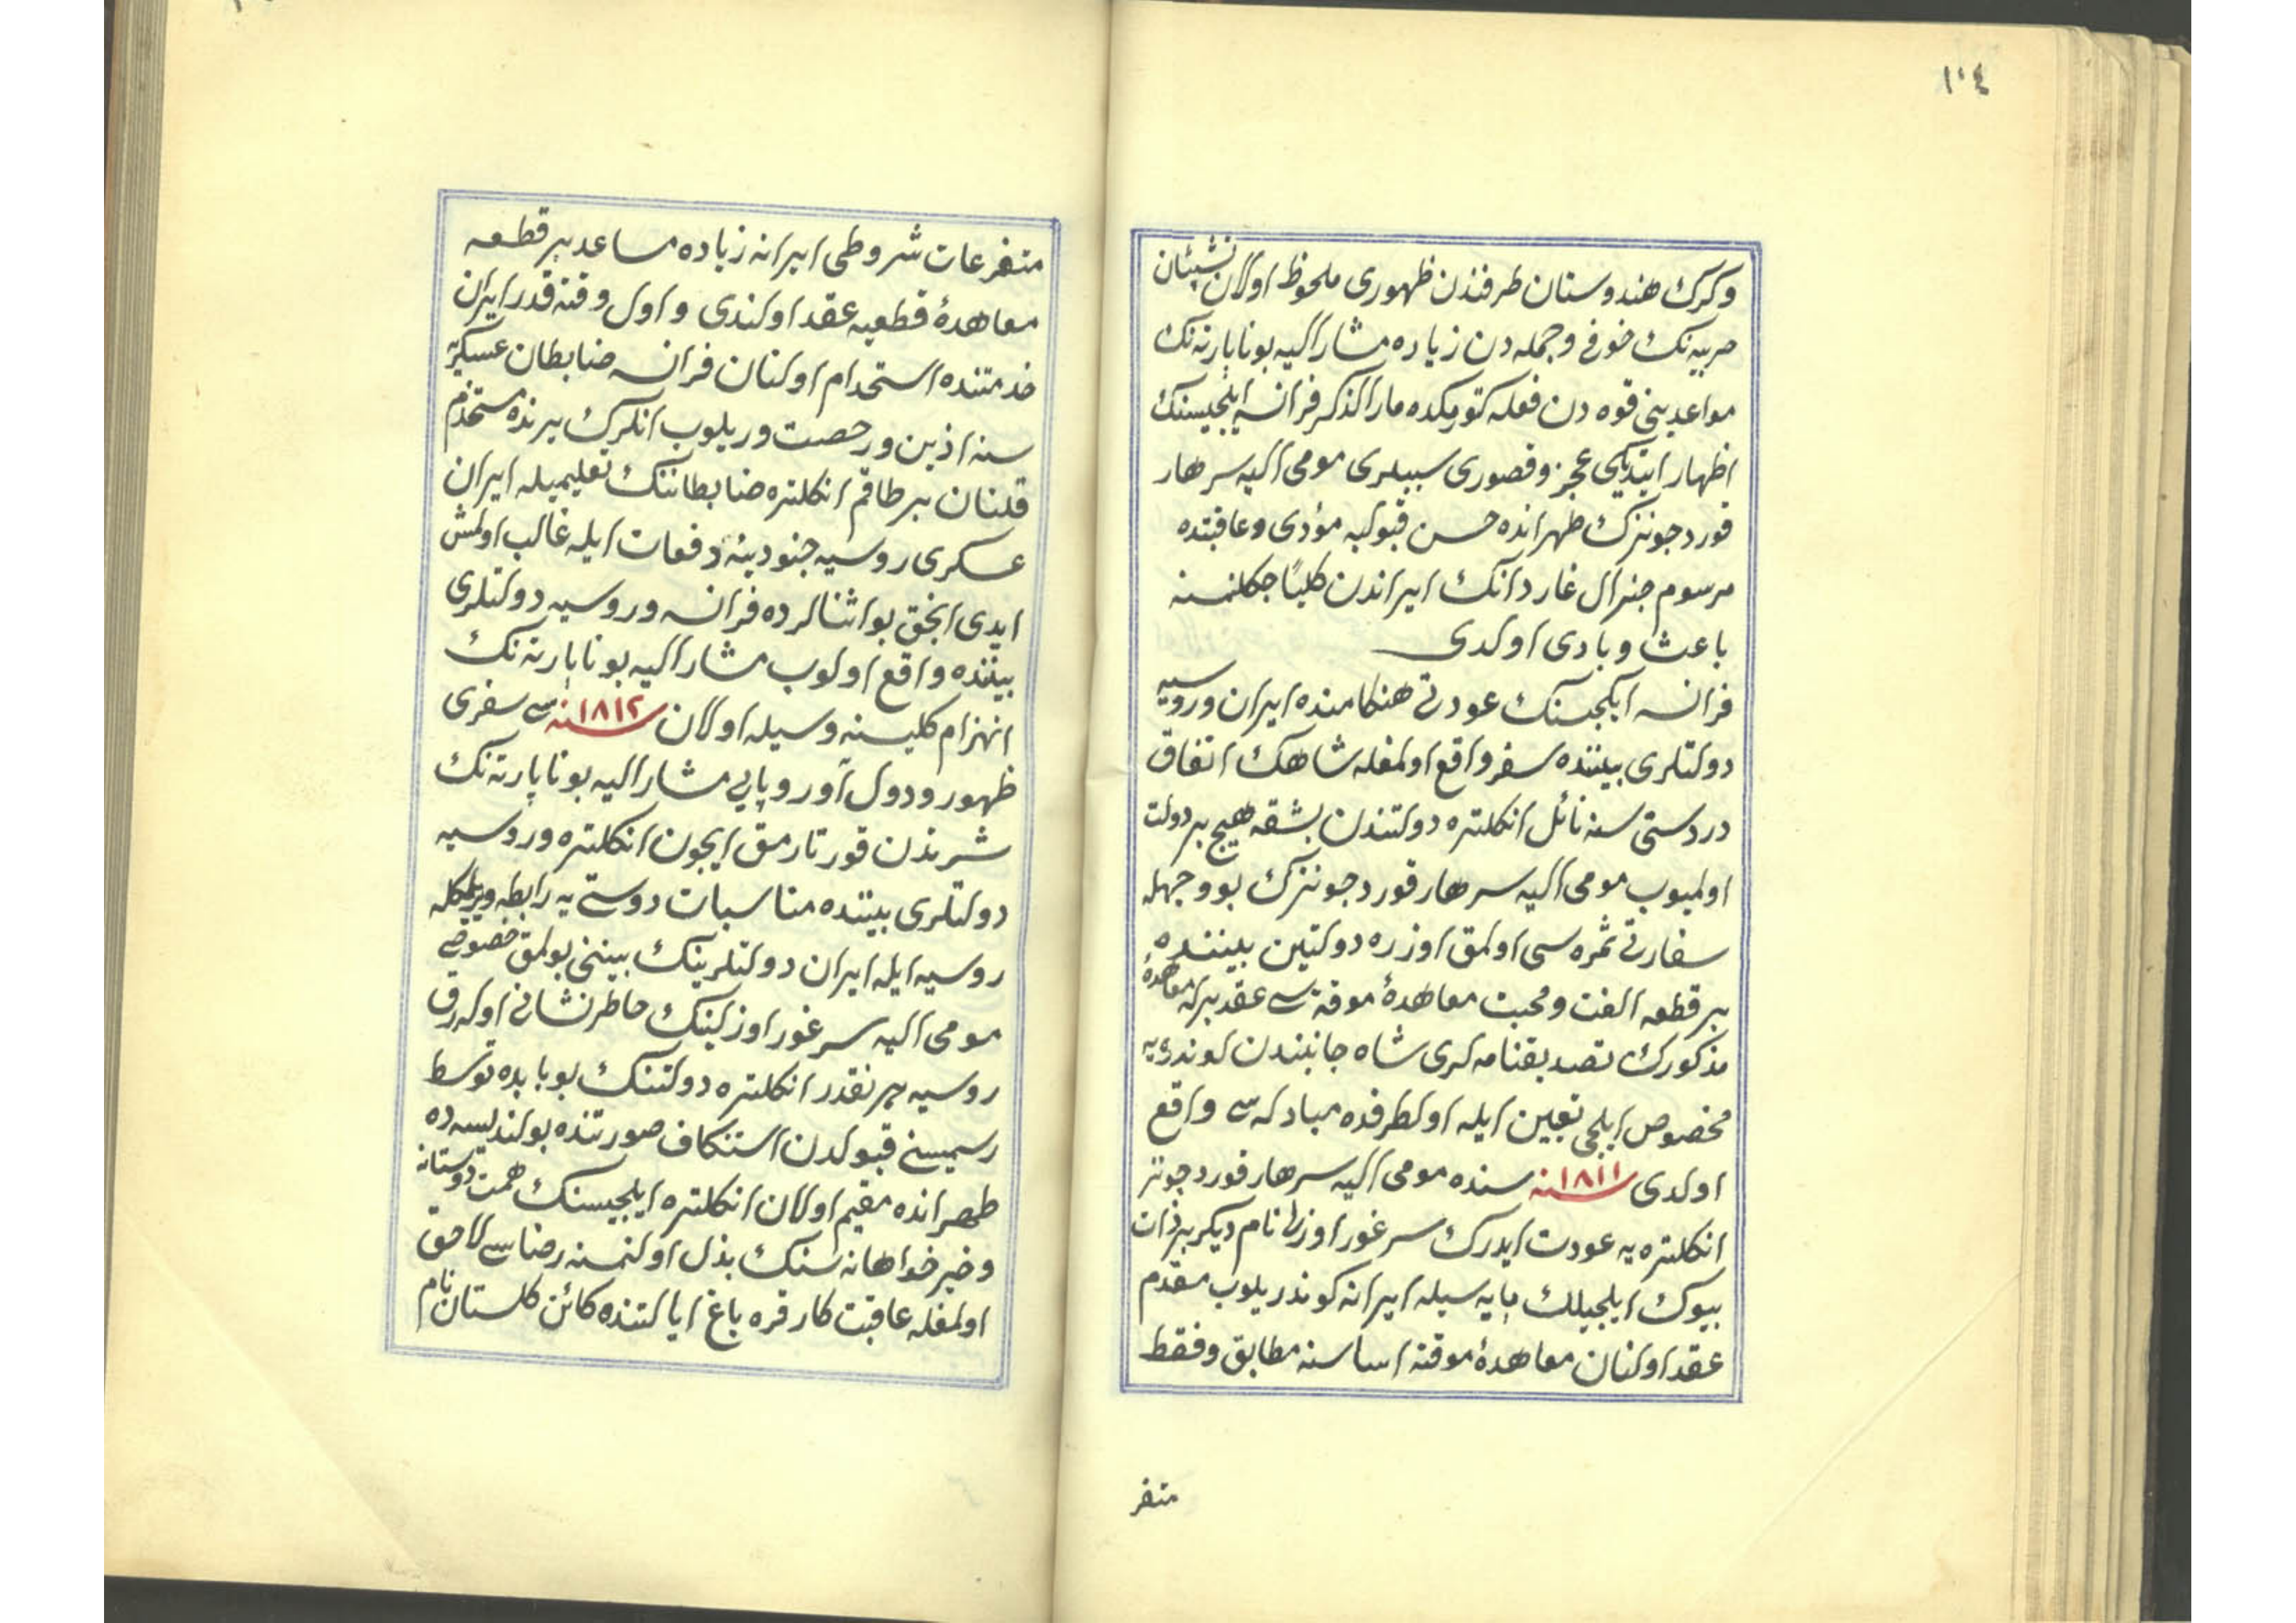 ١٠٤
وكرك هندوستان طرفندن ظهورى ملحوظ اولان تشبثان
حربيه‌نك خوفى و جمله‌دن زياده مشار اليه بوناپارته‌نك
مواعدينى قوه‌دن فعله كتورمكده مار الذكر فرانسه ايلچيسنك
اظهار ايتديكى عجز و قصورى سببلرى مومى اليه سر هار
فورد جونزك طهرانده حسن قبولنه مؤدى و عاقبتده
مرسوم جنرال غاردانك ايراندن كلياً چكلمسنه
باعث و بادى اولدى
فرانسه ايلچيسنك عودتى هنكامنده ايران و روسيه
دولتلرى بيننده سفر واقع اولمغله شاهك اتفاق
دردستى‌سنه نائل انكلتره دولتندن بشقه هيچ بر دولت
اولميوب مومى اليه سر هارفورد جونزك بو وجهله
سفارتى ثمره‌سى اولمق اوزره دولتين بيننده
بر قطعه الفت و محبت معاهدۀ موقته‌سى عقد برله معاهدۀ
مذكورك تصديقنامه‌لرى شاه جانبندن لوندره‌يه
مخصوص ايلچى تعيين ايله اولطرفده مبادله‌سى واقع
اولدى سنه ١٨١١ سنده مومى اليه سر هارفورد جونز
انكلتره‌يه عودت ايدرك سر غور اوزلى نام ديكر بر ذات
بيوك ايلچيلك پايه‌سيله ايرانه كوندريلوب مقدم
عقد اولنان معاهدۀ موقته اساسنه مطابق و فقط
متفر
متفرعات شروطى ايرانه زياده مساعد بر قطعه
معاهدۀ قطعيه عقد اولندى و اول وقته قدر ايران
خدمتنده استخدام اولنان فرانسه ضابطان عسكريه
سنه اذن و رخصت ويريلوب انلرك يرنده مستخدم
قلنان بر طاقم انكلتره ضابطاننك تعليميله ايران
عسكرى روسيه جنودينه دفعات ايله غالب اولمش
ايدى انجق بو اثنالرده فرانسه و روسيه دولتلرى
بيننده واقع اولوب مشار اليه بوناپارته‌نك
انهزام كليسنه وسيله اولان سنه ١٨١٢ سى سفرى
ظهور و دول آوروپايى مشار اليه بوناپارته‌نك
شرندن قورتارمق ايچون انكلتره و روسيه
دولتلرى بيننده مناسبات دوستى‌يه رابطه ويرلمكله
روسيه ايله ايران دولتلرينك بيننى بولمق خصوصى
مومى اليه سر غور اوزلينك خاطرنشانى اوله‌رق
روسيه هر نقدر انكلتره دولتنك بو بابده توسط
رسميسنى قبولدن استنكاف صورتنده بولنديسه‌ده
طهرانده مقيم اولان انكلتره ايلچيسنك همت دوستانه
و خيرخواهانه‌سنك بذل اولنمسنه رضاسى لاحق
اولمغله عاقبت كار قره باغ ايالتنده كائن كلستان نام